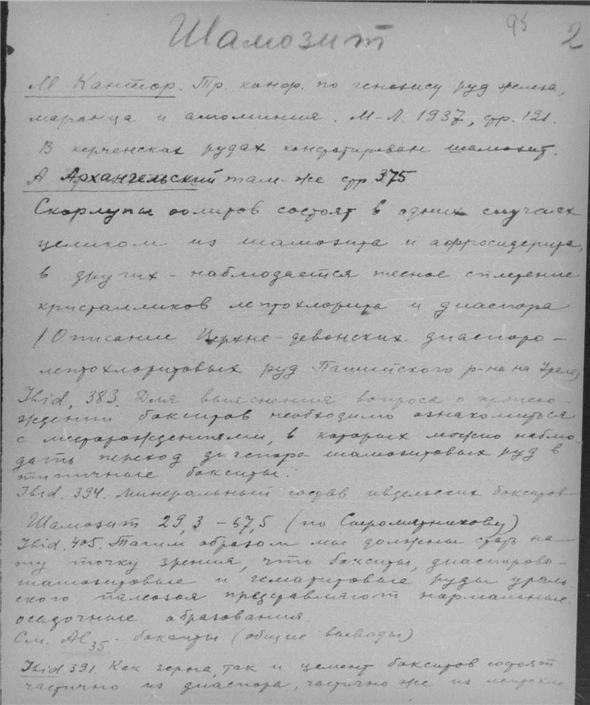 95 2
Шамозит
М Кантор. Тр. конф. по генезису руд железа,
марганца и алюминия. М-Л. 1937, стр. 121.
В керченских рудах констатирован шамозит.
А Архангельский там-же стр 375
Скорлупы оолитов состоят в одних случаях
целиком из шамозита и аффросидерита,
в других - наблюдается тесное сплетение
кристалликов лептохлорита и диаспора
(Описание Верхне-девонских диаспоро-
лептохлоритовых руд Пашийского р-на на Урале)
Ibid, 383. Для выяснения вопроса о происхо-
ждении бокситов необходимо ознакомиться
с месторождениями, в которых можно наблю-
дать переход диаспоро шамозитовых руд в
типичные бокситы.
Ibid. 394. Минеральный состав ивдельских бокситов
Шамозит 29,3 - 57,5 (по Сыромятникову)
Ibid. 405. Таким образом мы должны стать на
ту точку зрения, что бокситы, диаспорово-
шамозитовые и гематитовые руды ураль-
ского палеозоя представляют нормальные
осадочные образования.
См. Al 35 - бокситы (общие выводы)
Ibid. 391. Как зерна, так и цемент бокситов состоят
частично из диаспора, частично же из